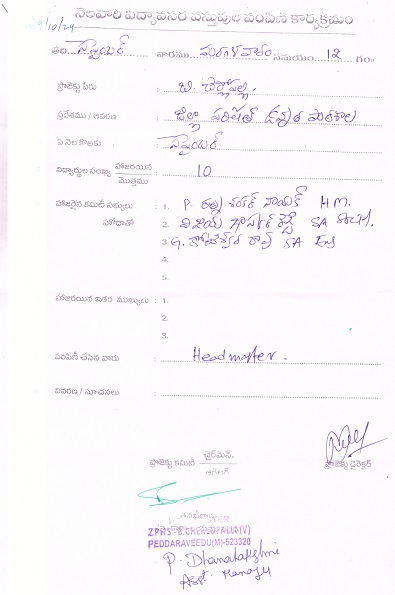 29/10/24
నెలవారి విద్యావసర వస్తువుల పంపిణి కార్యక్రమం
తేది సెప్టెంబర్ వారము మంగళవారం సమయం 12 గం॥
ప్రాజెక్టు పేరు : బి. చెర్లోపల్లి.
ప్రదేశము / ఆవరణ : జిల్లా పరిషత్ ఉన్నత పాఠశాల
ఏ నెల కొఱకు : సెప్టెంబర్
విద్యార్థుల సంఖ్య హాజరయిన / మొత్తము : 10
హాజరైన కమిటీ సభ్యులు : 1. P. శంకర్ నాయక్ H.M.
హోదాతో 2. విజయ రెడ్డి SA
3. G. కోటేశ్వర రావు SA Eng
4.
5.
హాజరయిన ఇతర ముఖ్యులు : 1.
2.
3.
పంపిణీ చేసిన వారు : Headmaster.
వివరణ / సూచనలు :
ప్రాజెక్టు కమిటీ ఛైర్మెన్.
ప్రాజెక్టు డైరెక్టర్
ZPHS - B.CHERLOPALLI(V)
PEDDARAVEEDU(M)-523320
P. Dhanalakshmi
Asst. Manager